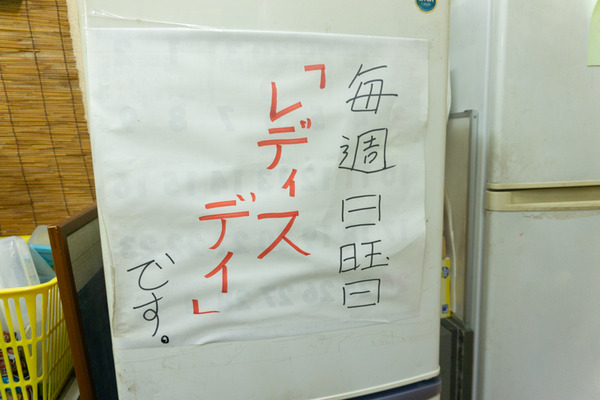 毎週日旺日
「レディス
デイ」
です。